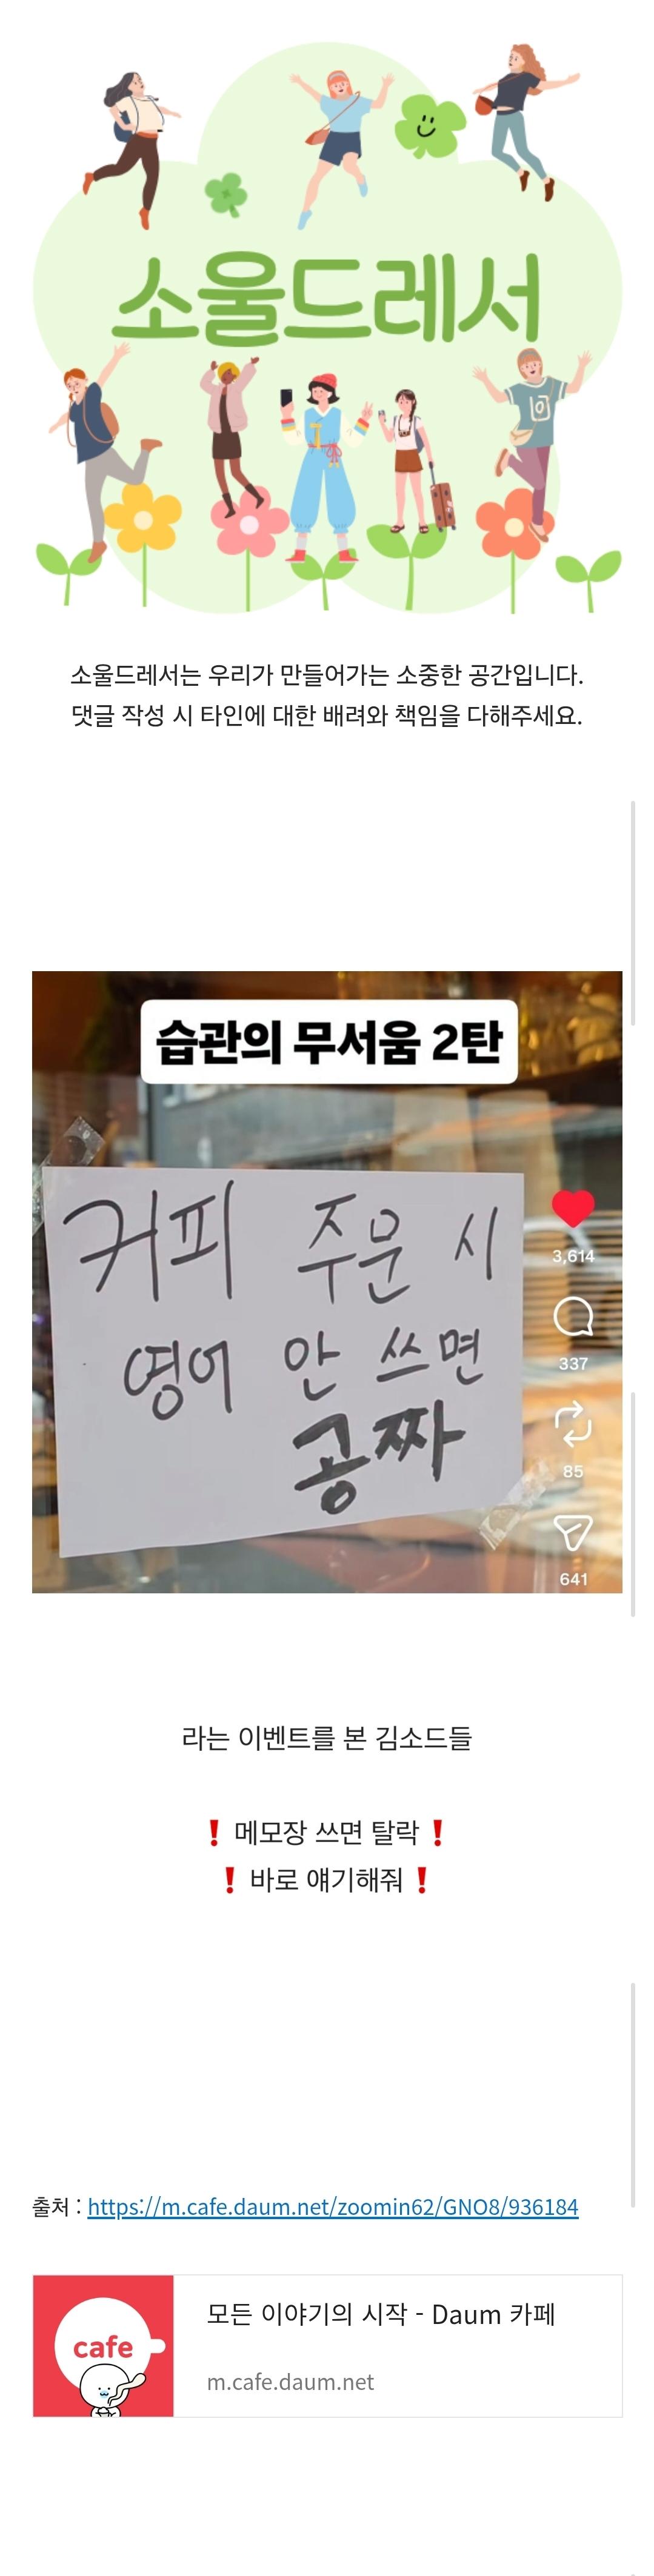 소울드레서
소울드레서는 우리가 만들어가는 소중한 공간입니다.
댓글 작성 시 타인에 대한 배려와 책임을 다해주세요.
습관의 무서움 2탄
커피 주문 시
영어 안 쓰면
공짜
3,614
337
85
641
라는 이벤트를 본 김소드들
❗ 메모장 쓰면 탈락 ❗
❗ 바로 얘기해줘 ❗
출처 : https://m.cafe.daum.net/zoomin62/GNO8/936184
cafe
모든 이야기의 시작 - Daum 카페
m.cafe.daum.net